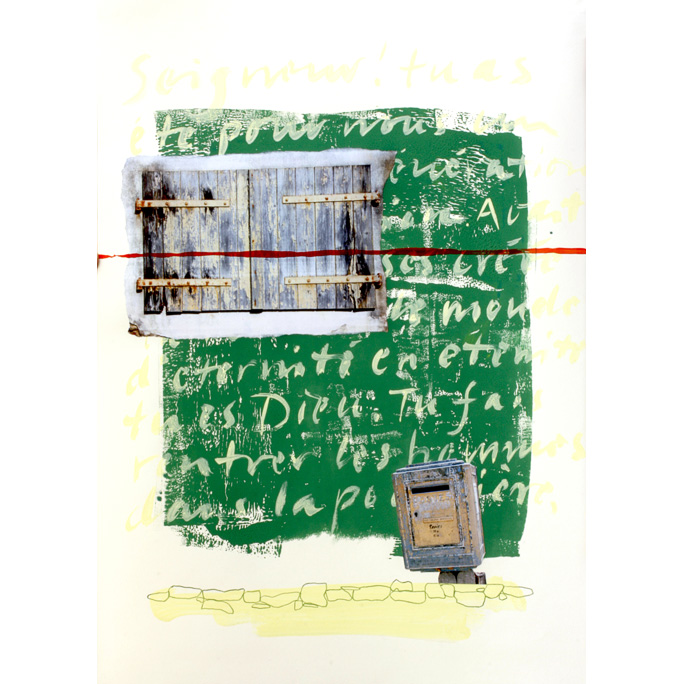 Seigneur! tu as
été pour nous un
énération
Avant
ses créé
monde
d'éternité en éternité
tu es Dieu. Tu fais
rentrer les hommes
dans la po ière.